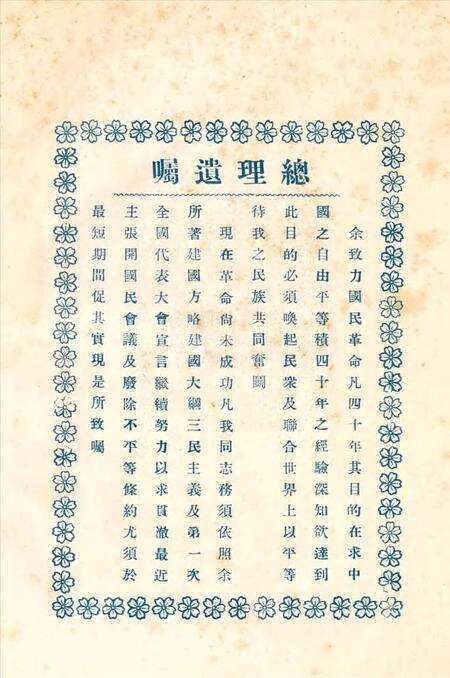 總理遺囑
余致力國民革命凡四十年其目的在求中
國之自由平等積四十年之經驗深知欲達到
此目的必須喚起民衆及聯合世界上以平等
待我之民族共同奮鬭
現在革命尙未成功凡我同志務須依照余
所著建國方略建國大綱三民主義及第一次
全國代表大會宣言繼續努力以求貫澈最近
主張開國民會議及廢除不平等條約尤須於
最短期間促其實現是所致囑